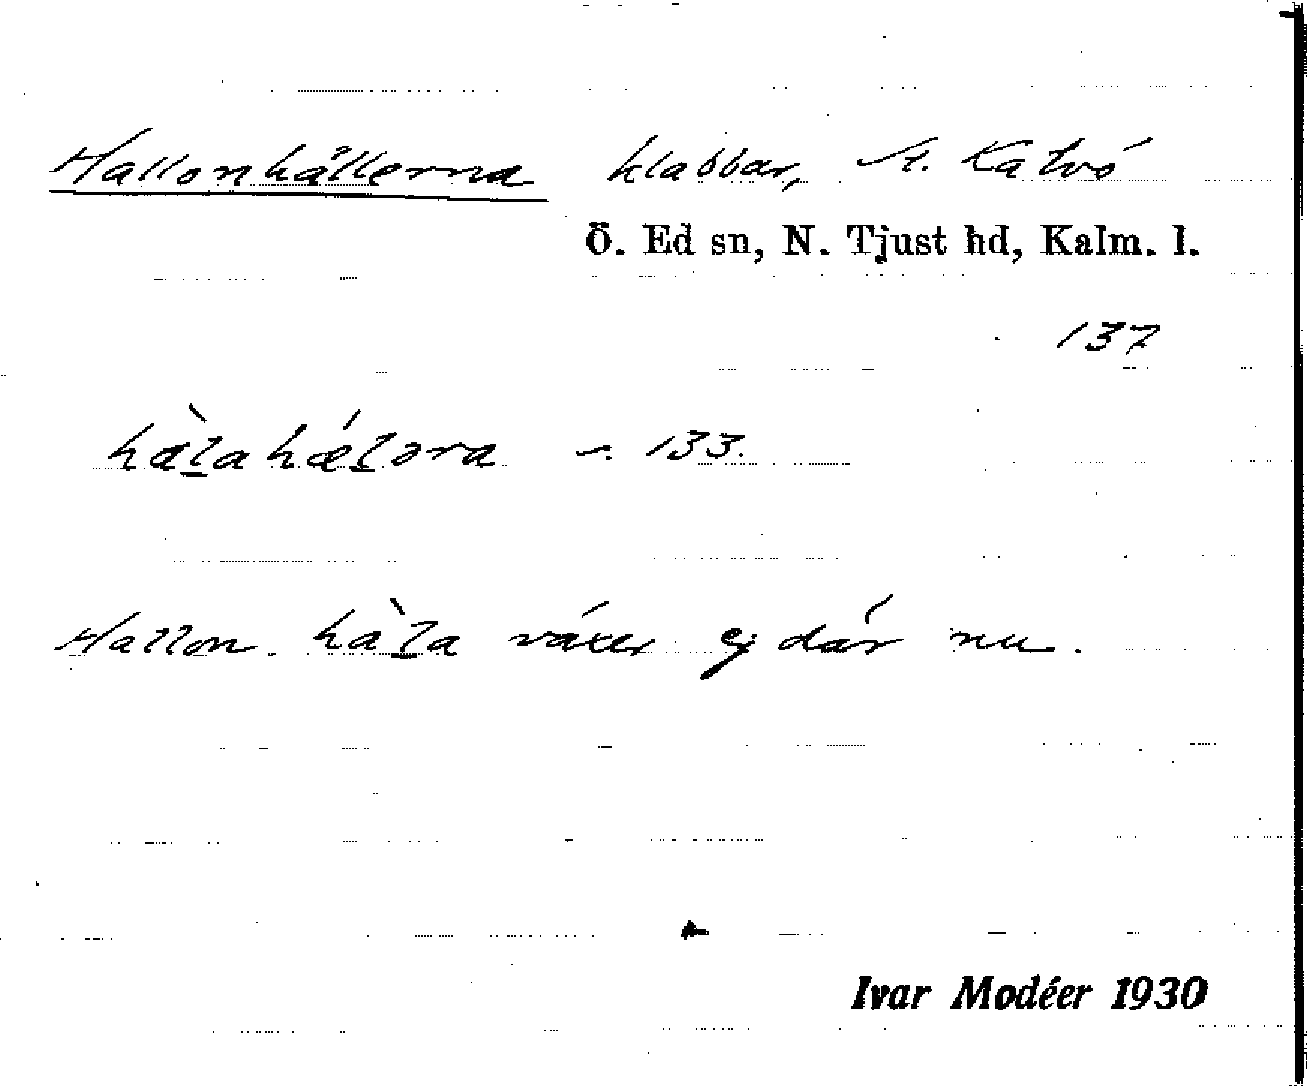 Hallonhällerna klabbar, St. Kätvö
Ö. Ed sn, N. Tjust hd, Kalm. l.
137
hàlahǽlora ~. 133.
Hallon hàla växer ej där nu.
Ivar Modéer 1930